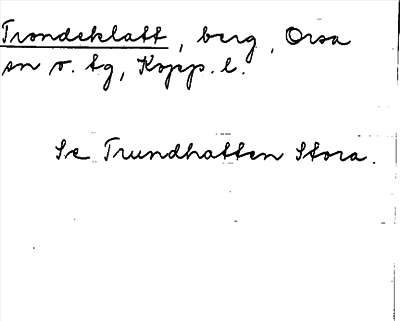 Trondsklatt, berg, Orsa
sn o. tg, Kopp. l.
Se Trundhatten Stora.